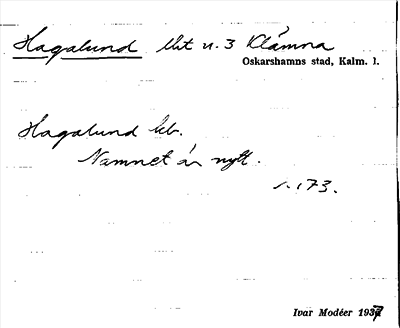 Hagalund lht u. 3 Klämna
Oskarshamns stad, Kalm. l.
Hagalund leb.
Namnet är nytt.
s. 173.
Ivar Modéer 1937